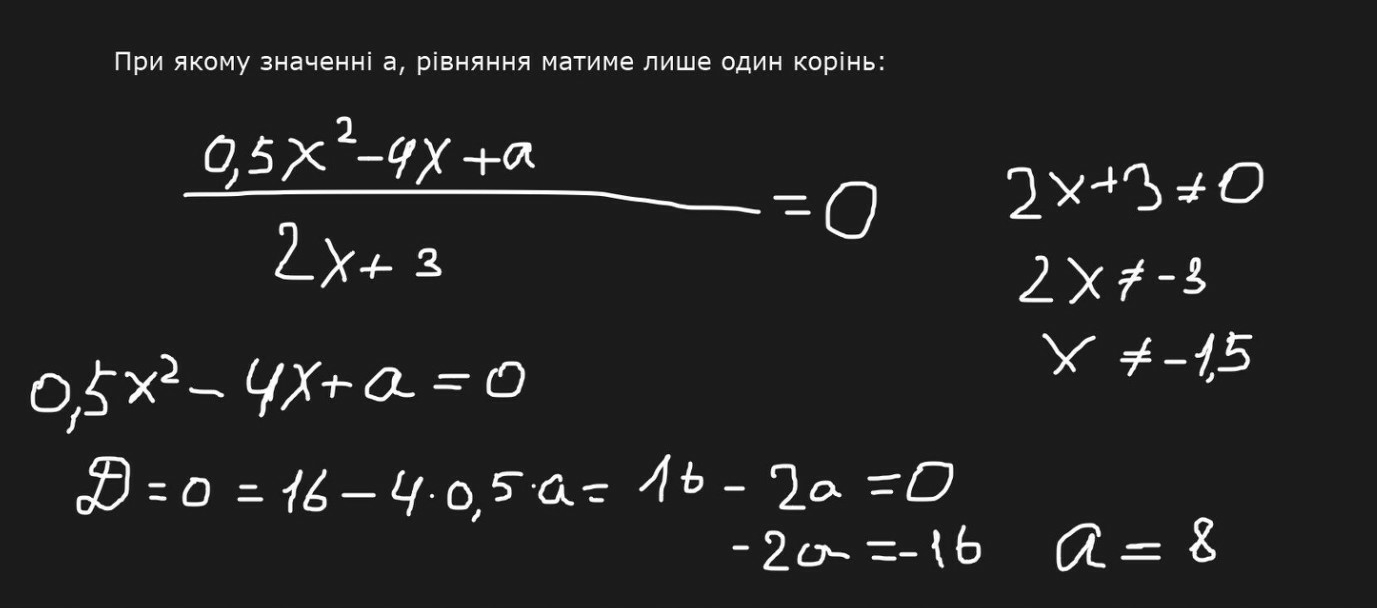 При якому значенні а, рівняння матиме лише один корінь:
0,5x²-4x+a
2x+3
=0
2x+3≠0
2x≠-3
x≠-1,5
0,5x²-4x+a=0
D=0=16-4·0,5·a=16-2a=0
-2a=-16
a=8